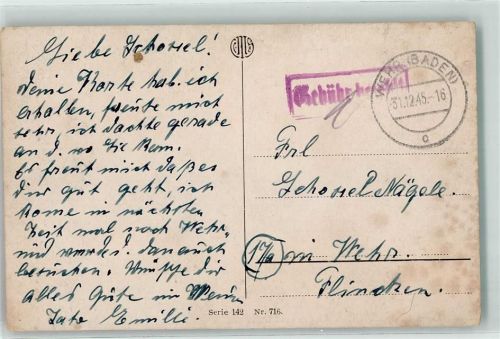 Liebe Schossel!
Deine Karte hab. ich
erhalten, freute mich
sehr, ich dachte gerade
an d. wo die kam.
Es freut mich daßes
dir gut geht, ich
kome in nächsten
Zeit mal nach Wehr,
und werde d. dan auch
besuchen. Wünsche dir
alles Gute im Neuen
Jahr Emilie.
Serie 142 Nr. 716.
Gebühr bezahlt
WEHR (BADEN)
31.12.45.-16
c
Frl
Schossel Nägele.
17a in Wehr.